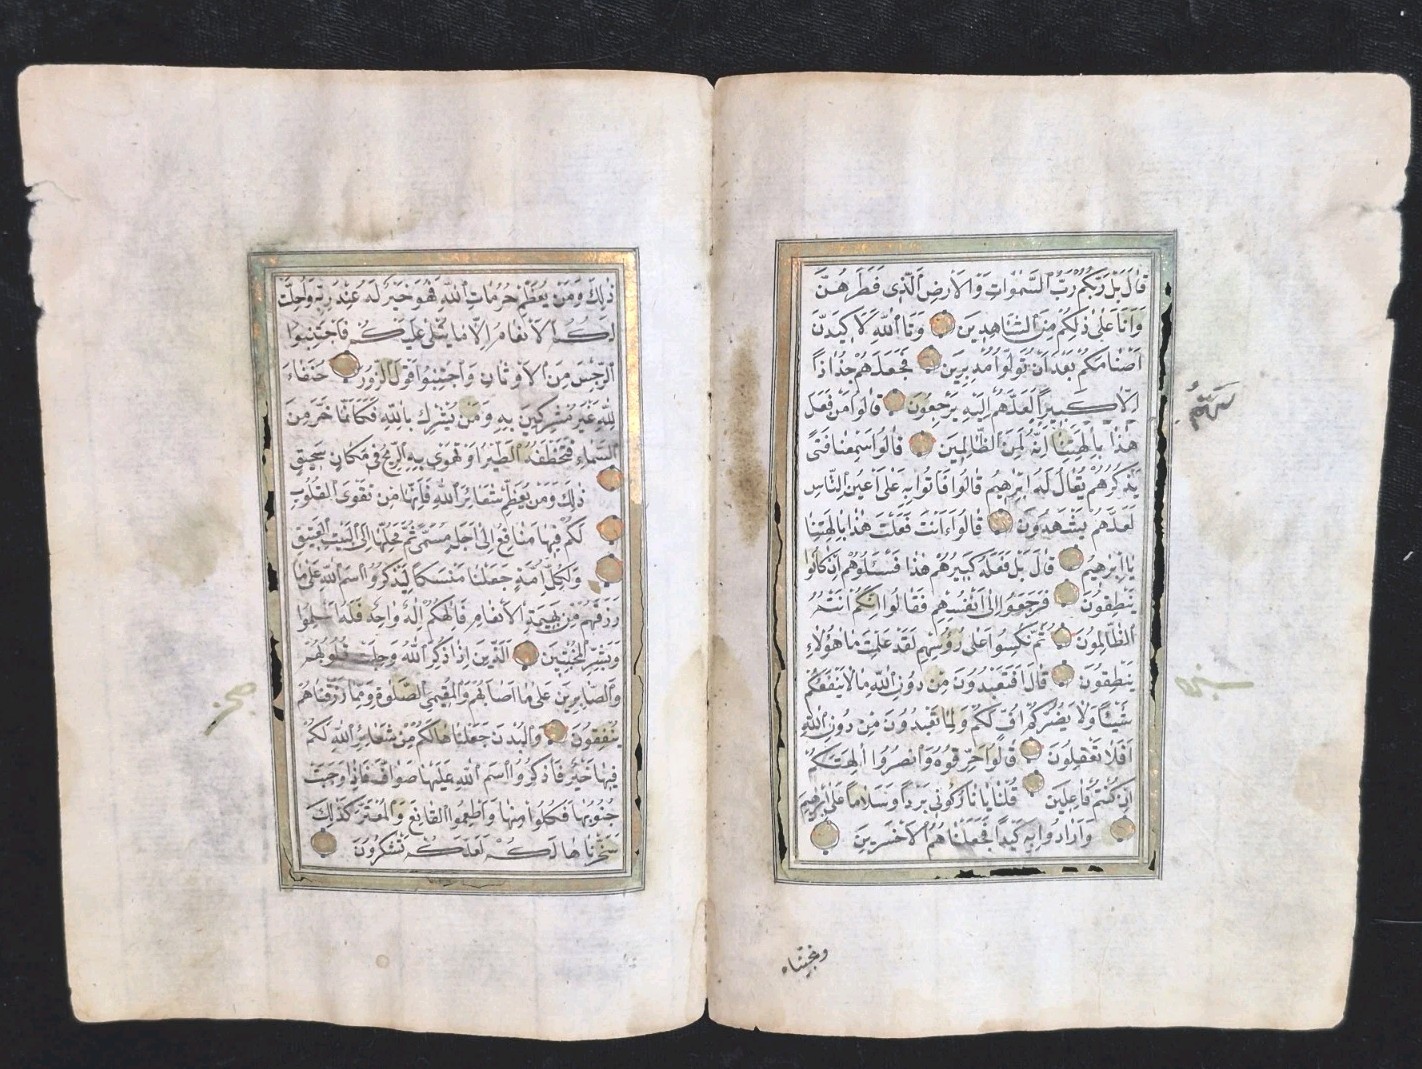 قَالَ بَلْ رَبُّكُمْ رَبُّ السَّمٰوَاتِ وَالْاَرْضِ الَّذِى فَطَرَهُنَّ
وَاَنَا عَلٰى ذٰلِكُمْ مِنَ الشَّاهِدِينَ وَتَاللّٰهِ لَاَكِيدَنَّ
اَصْنَامَكُمْ بَعْدَ اَنْ تُوَلُّوا مُدْبِرِينَ فَجَعَلَهُمْ جُذَاذًا
اِلَّا كَبِيرًا لَهُمْ لَعَلَّهُمْ اِلَيْهِ يَرْجِعُونَ قَالُوا مَنْ فَعَلَ
هٰذَا بِاٰلِهَتِنَا اِنَّهُ لَمِنَ الظَّالِمِينَ قَالُوا سَمِعْنَا فَتًى
يَذْكُرُهُمْ يُقَالُ لَهُ اِبْرٰهِيمُ قَالُوا فَاْتُوا بِهِ عَلٰى اَعْيُنِ النَّاسِ
لَعَلَّهُمْ يَشْهَدُونَ قَالُوا ءَاَنْتَ فَعَلْتَ هٰذَا بِاٰلِهَتِنَا
يَا اِبْرٰهِيمُ قَالَ بَلْ فَعَلَهُ كَبِيرُهُمْ هٰذَا فَسْـَٔلُوهُمْ اِنْ كَانُوا
يَنْطِقُونَ فَرَجَعُوا اِلٰى اَنْفُسِهِمْ فَقَالُوا اِنَّكُمْ اَنْتُمُ
الظَّالِمُونَ ثُمَّ نُكِسُوا عَلٰى رُؤُسِهِمْ لَقَدْ عَلِمْتَ مَا هٰؤُلَاءِ
يَنْطِقُونَ قَالَ اَفَتَعْبُدُونَ مِنْ دُونِ اللّٰهِ مَا لَا يَنْفَعُكُمْ
شَيْئًا وَلَا يَضُرُّكُمْ اُفٍّ لَكُمْ وَلِمَا تَعْبُدُونَ مِنْ دُونِ اللّٰهِ
اَفَلَا تَعْقِلُونَ قَالُوا حَرِّقُوهُ وَانْصُرُوا اٰلِهَتَكُمْ
اِنْ كُنْتُمْ فَاعِلِينَ قُلْنَا يَا نَارُ كُونِى بَرْدًا وَسَلَامًا عَلٰى اِبْرٰهِيمَ
وَاَرَادُوا بِهِ كَيْدًا فَجَعَلْنَاهُمُ الْاَخْسَرِينَ
وَنَجَّيْنَاهُ
ذٰلِكَ وَمَنْ يُعَظِّمْ حُرُمَاتِ اللّٰهِ فَهُوَ خَيْرٌ لَهُ عِنْدَ رَبِّهِ وَاُحِلَّتْ
لَكُمُ الْاَنْعَامُ اِلَّا مَا يُتْلٰى عَلَيْكُمْ فَاجْتَنِبُوا
الرِّجْسَ مِنَ الْاَوْثَانِ وَاجْتَنِبُوا قَوْلَ الزُّورِ حُنَفَاءَ
لِلّٰهِ غَيْرَ مُشْرِكِينَ بِهِ وَمَنْ يُشْرِكْ بِاللّٰهِ فَكَاَنَّمَا خَرَّ مِنَ
السَّمَاءِ فَتَخْطَفُهُ الطَّيْرُ اَوْ تَهْوِى بِهِ الرِّيحُ فِى مَكَانٍ سَحِيقٍ
ذٰلِكَ وَمَنْ يُعَظِّمْ شَعَائِرَ اللّٰهِ فَاِنَّهَا مِنْ تَقْوَى الْقُلُوبِ
لَكُمْ فِيهَا مَنَافِعُ اِلٰى اَجَلٍ مُسَمًّى ثُمَّ مَحِلُّهَا اِلَى الْبَيْتِ الْعَتِيقِ
وَلِكُلِّ اُمَّةٍ جَعَلْنَا مَنْسَكًا لِيَذْكُرُوا اسْمَ اللّٰهِ عَلٰى مَا
رَزَقَهُمْ مِنْ بَهِيمَةِ الْاَنْعَامِ فَاِلٰهُكُمْ اِلٰهٌ وَاحِدٌ فَلَهُ اَسْلِمُوا
وَبَشِّرِ الْمُخْبِتِينَ الَّذِينَ اِذَا ذُكِرَ اللّٰهُ وَجِلَتْ قُلُوبُهُمْ
وَالصَّابِرِينَ عَلٰى مَا اَصَابَهُمْ وَالْمُقِيمِى الصَّلٰوةِ وَمِمَّا رَزَقْنَاهُمْ
يُنْفِقُونَ وَالْبُدْنَ جَعَلْنَاهَا لَكُمْ مِنْ شَعَائِرِ اللّٰهِ لَكُمْ
فِيهَا خَيْرٌ فَاذْكُرُوا اسْمَ اللّٰهِ عَلَيْهَا صَوَافَّ فَاِذَا وَجَبَتْ
جُنُوبُهَا فَكُلُوا مِنْهَا وَاَطْعِمُوا الْقَانِعَ وَالْمُعْتَرَّ كَذٰلِكَ
سَخَّرْنَاهَا لَكُمْ لَعَلَّكُمْ تَشْكُرُونَ